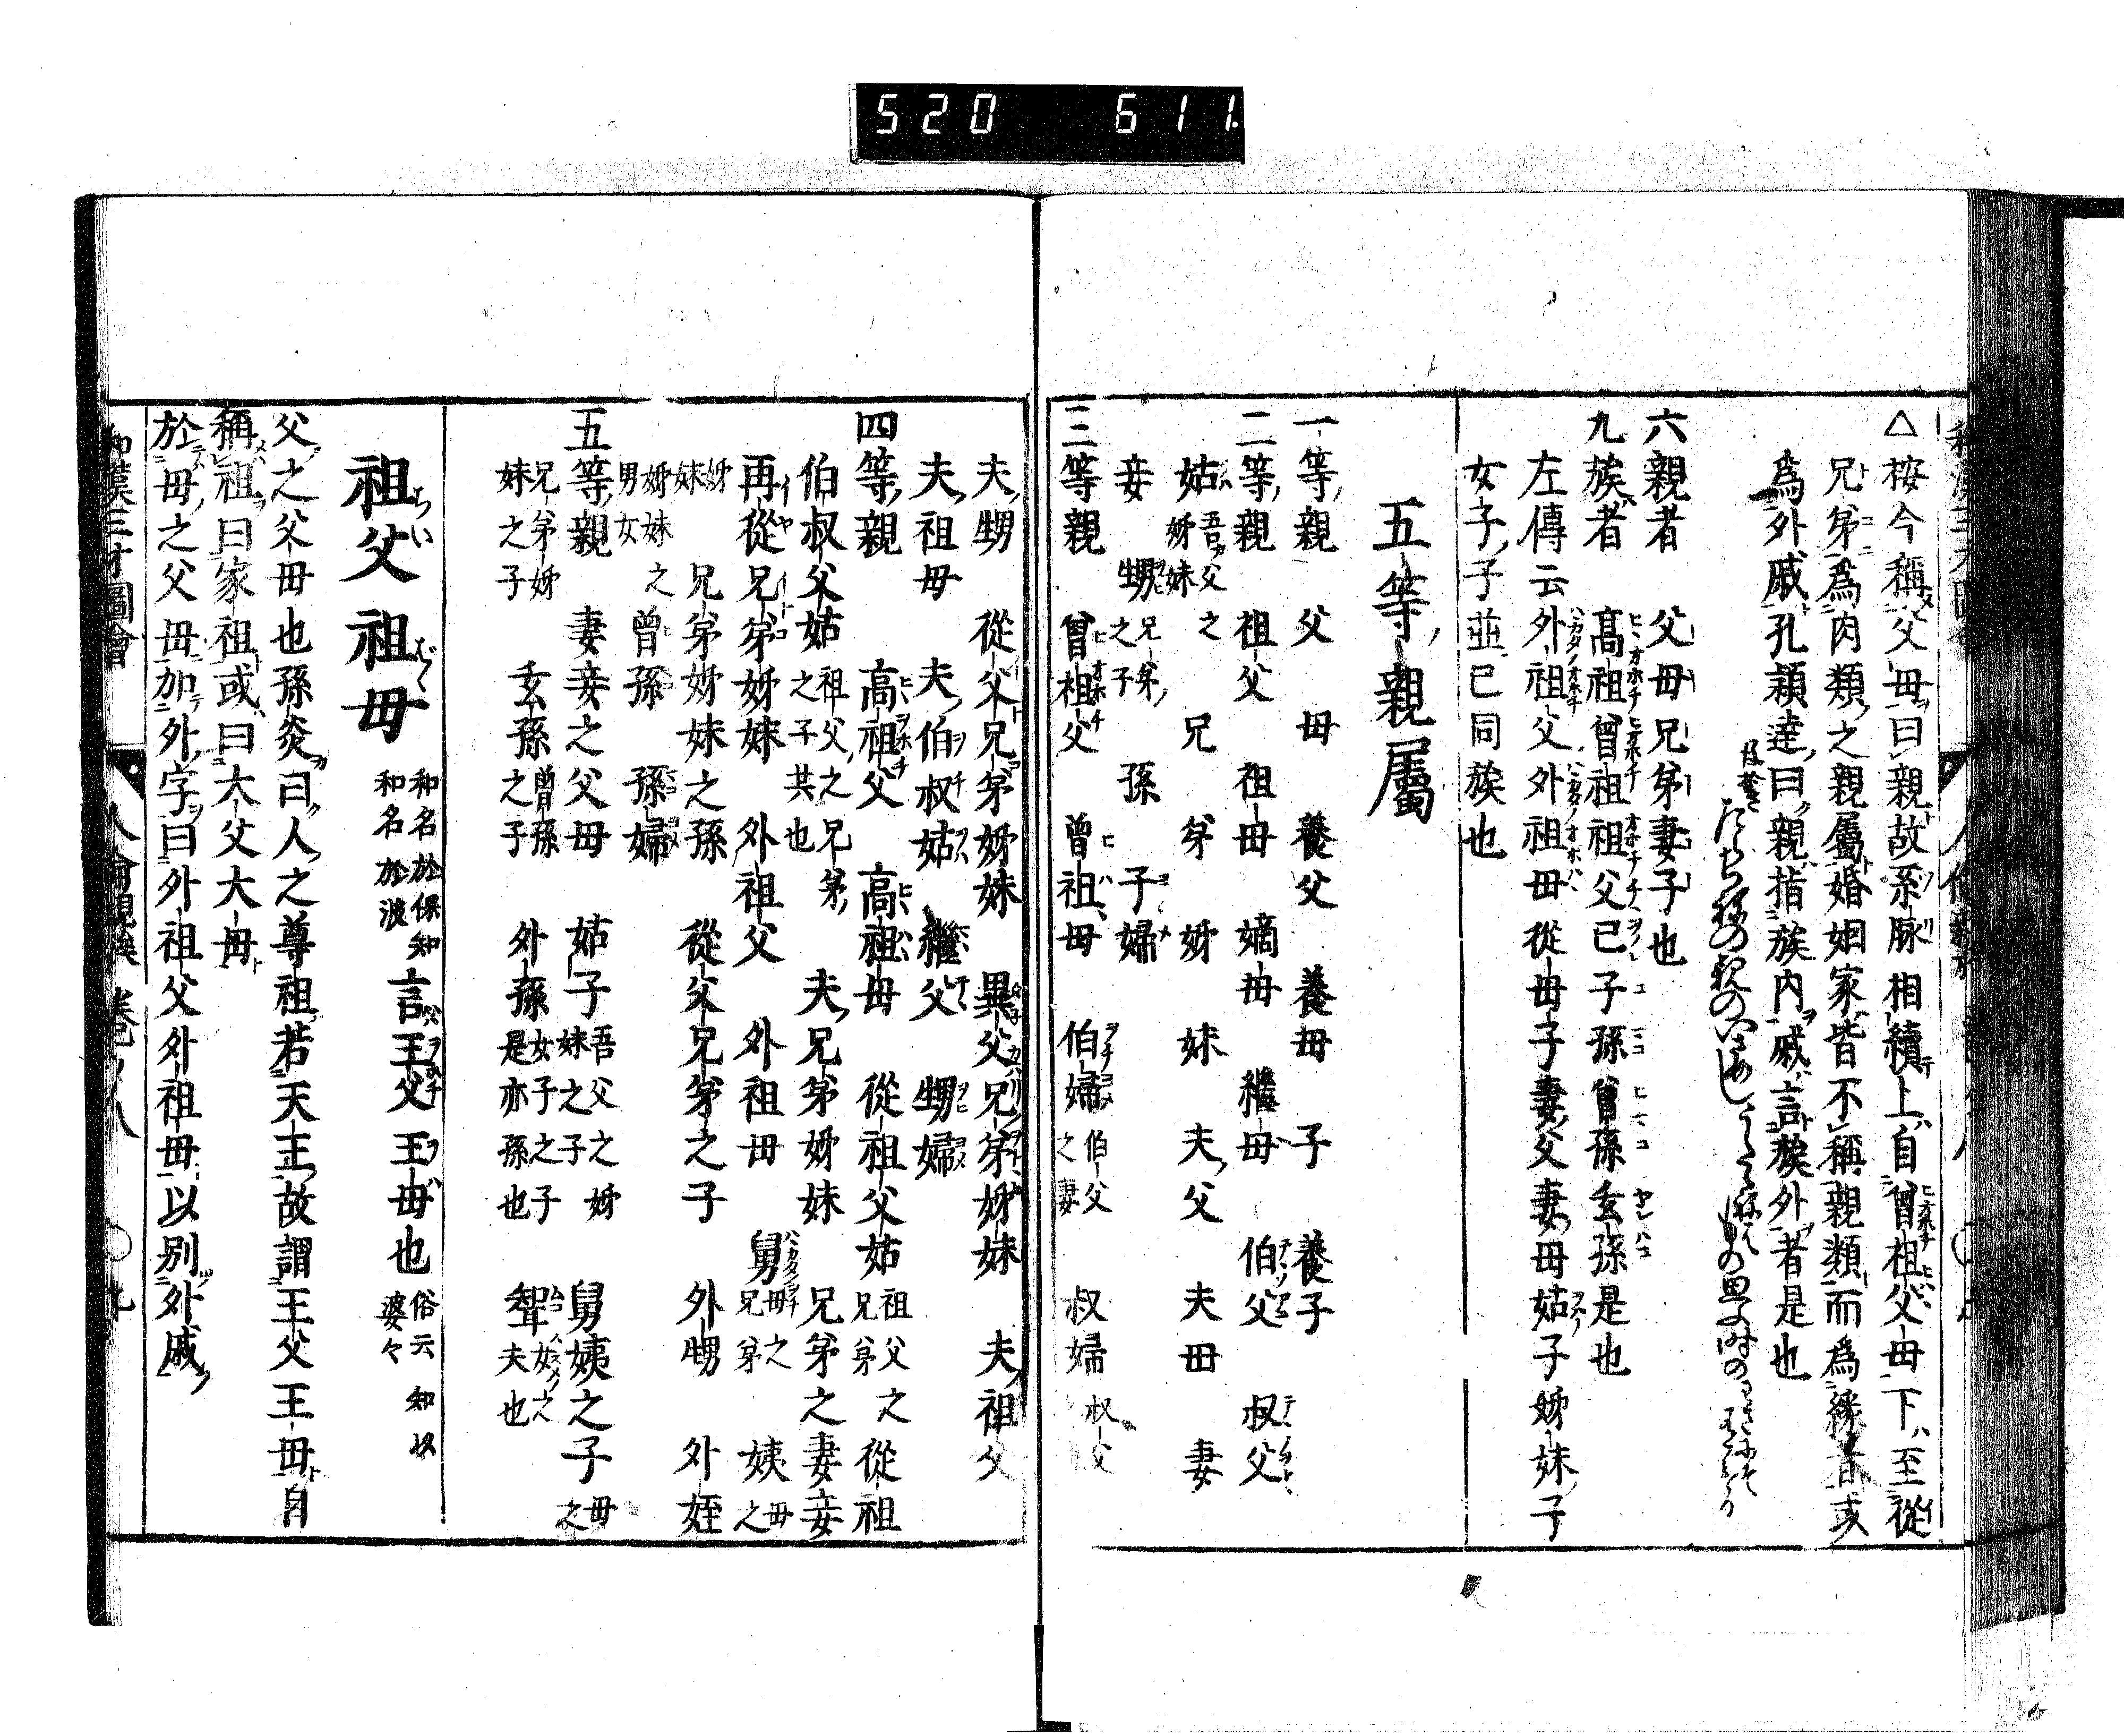 520 611
△按今稱父母曰親故系脉相續上自曾祖父母下至從
兄弟爲肉類之親屬婚姻家皆不稱親類而爲縁者或
爲外戚孔穎達曰親指族内戚言族外者是也
六親者 父母兄弟妻子也
九族者 髙祖曾祖祖父己子孫曾孫玄孫是也
左傳云外祖父外祖母從母子妻父妻母姑子姊妹子
女子子並己同族也
五等親屬
一等親 父 母 養父 養母 子 養子
二等親 祖父 祖母 嫡母 繼母 伯父 叔父
姑 吾父姊妹之 兄 弟 姊 妹 夫父 夫母 妻
妾 甥 兄弟之子 孫 子婦
三等親 曾祖父 曾祖母 伯婦 伯父之妻 叔婦 叔父
夫甥 從父兄弟姊妹 異父兄弟姊妹 夫祖父
夫祖母 夫伯叔姑 繼父 甥婦
四等親 高祖父 高祖母 從祖父姑 祖父之兄弟 從祖
伯叔父姑 祖父之兄弟之子共也 夫兄弟姊妹 兄弟之妻妾
再從兄弟姊妹 外祖父 外祖母 舅 母之兄弟 姨 母之
姊妹 兄弟姊妹之孫 從父兄弟之子 外甥 外姪
姊妹之男女 曾孫 孫婦
五等親 妻妾之父母 姑子 吾父之姊妹之子 舅姨之子 母之
兄弟姊妹之子 玄孫 曾孫之子 外孫 女子之子是亦孫也 聟 女之夫也
祖父祖母 ぢい ばゝ 和名於保知 和名於波 言王父王母也 俗云知以 婆々
父之父母也孫炎曰人之尊祖若天王故謂王父王母自
稱祖曰家祖或曰大父大母
於母之父母加外字曰外祖父外祖母以別外戚
和漢三才圖會 人倫親族 卷之八 〇九